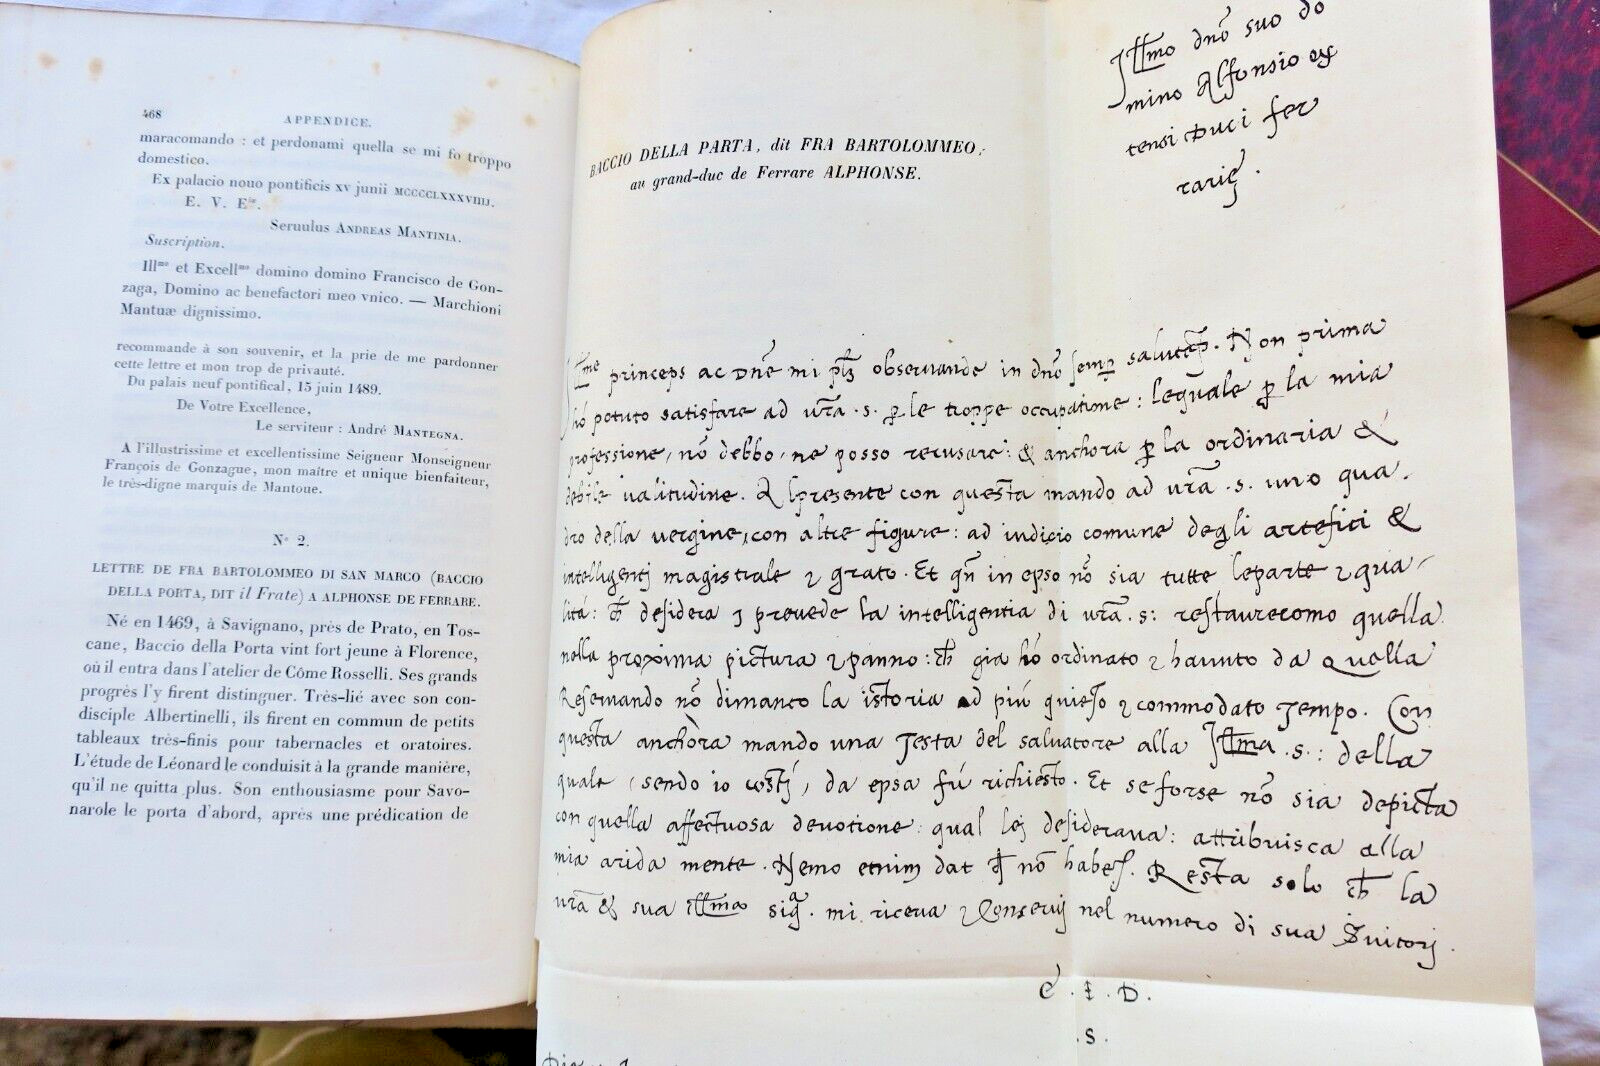 468
APPENDICE.
maracomando : et perdonami quella se mi fo troppo
domestico.
Ex palacio nouo pontificis xv junii MCCCCLXXXVIIIJ.
E. V. Eⁱᵃ.
Seruulus ANDREAS MANTINIA.
Suscription.
Illᵐᵒ et Excellᵐᵒ domino domino Francisco de Gon-
zaga, Domino ac benefactori meo vnico. — Marchioni
Mantuæ dignissimo.
recommande à son souvenir, et la prie de me pardonner
cette lettre et mon trop de privauté.
Du palais neuf pontifical, 15 juin 1489.
De Votre Excellence,
Le serviteur : André MANTEGNA.
A l'illustrissime et excellentissime Seigneur Monseigneur
François de Gonzague, mon maître et unique bienfaiteur,
le très-digne marquis de Mantoue.
Nº 2.
LETTRE DE FRA BARTOLOMMEO DI SAN MARCO (BACCIO
DELLA PORTA, DIT il Frate) A ALPHONSE DE FERRARE.
Né en 1469, à Savignano, près de Prato, en Tos-
cane, Baccio della Porta vint fort jeune à Florence,
où il entra dans l'atelier de Côme Rosselli. Ses grands
progrès l'y firent distinguer. Très-lié avec son con-
disciple Albertinelli, ils firent en commun de petits
tableaux très-finis pour tabernacles et oratoires.
L'étude de Léonard le conduisit à la grande manière,
qu'il ne quitta plus. Son enthousiasme pour Savo-
narole le porta d'abord, après une prédication de
BACCIO DELLA PARTA, dit FRA BARTOLOMMEO,
au grand-duc de Ferrare ALPHONSE.
Illmo dno suo do
mino Alfonsio
tensi Duci fer
rarię.
Illme princeps ac Dne mi observande in dno semp. Non prima
hò potuto satisfare ad vra .s. p le troppe occupatione : lequale p la mia
professione, nõ debbo, ne posso recusare : & anchora p la ordinaria &
debile valitudine. Al presente con questa mando ad vra .s. uno qua.
dro della vergine, con altre figure : ad iudicio comune degli artefici &
intelligentj magistrale & grato. Et in epso nõ sia tutte le parte & qua/
lità : desidera & prevede la intelligentia di vra .s: restaure como quella
nella proxima pictura & panno : già hò ordinato & havuto da Quella
Reservando nõ dimanco la istoria ad più quieto & commodato Tempo. Con
questa anchora mando una Testa del salvatore alla Illma .s.: della
quale, sendo io costj, da epsa fú richiesto. Et se forse nõ sia depicta
con quella affectuosa devotione qual lej desiderava : attribuisca alla
mia arida mente. Nemo etnim dat nõ habet. Resta solo la
vra & sua Illma sig. mi riceva & Conservj nel numero di sua Suitorj.
E . I . D .
. S .